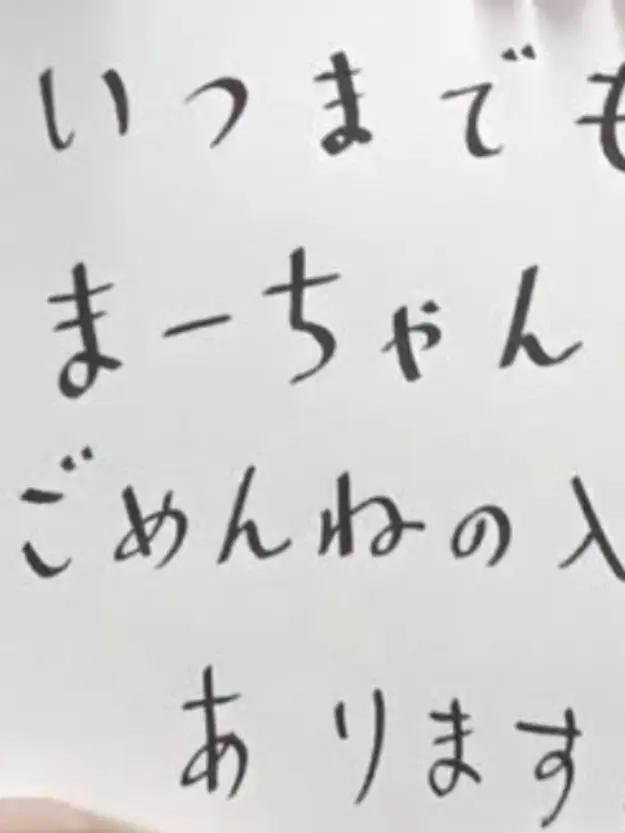 いつまでも
まーちゃん
ごめんねの入
あります